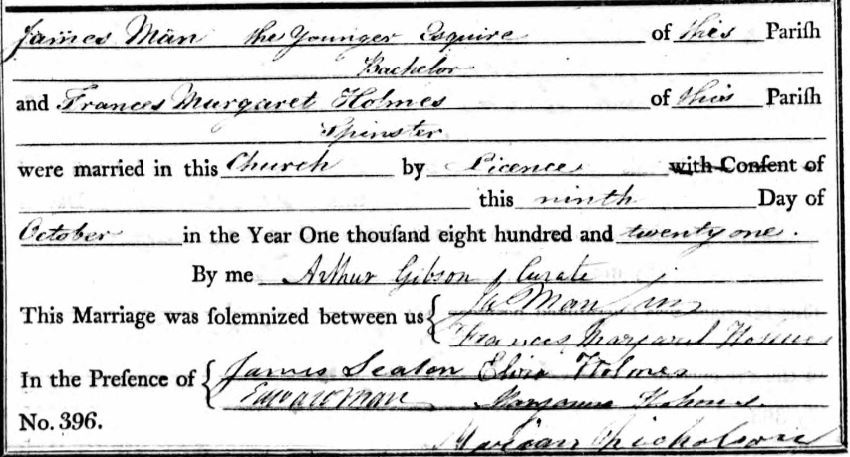 James Man the Younger Esquire of this Pariſh
Bachelor
and Frances Margaret Holmes of this Pariſh
Spinster
were married in this Church by Licence with Conſent of
this ninth Day of
October in the Year One thouſand eight hundred and twenty one.
By me Arthur Gibson Curate
This Marriage was ſolemnized between us { Ja Man Jun
Frances Margaret Holmes
In the Preſence of { James Seaton Holmes
Edward Man
No. 396.
Nicholson